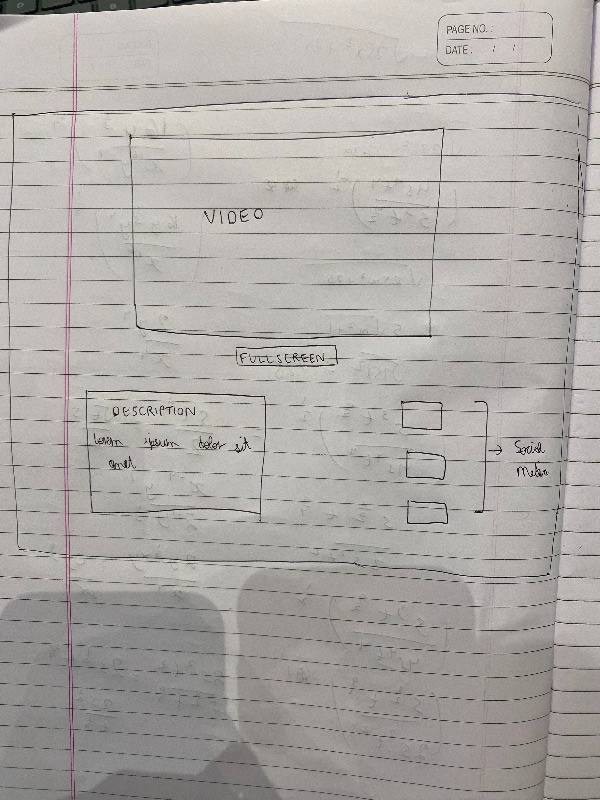 PAGE NO.:
DATE: / /
VIDEO
FULLSCREEN
DESCRIPTION
Lorem ipsum dolor sit
amet
Social
Media